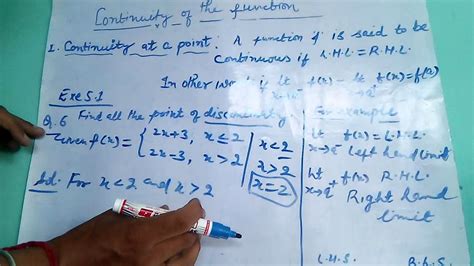 Continuity of the function
1. Continuity at a point: A function f is said to be
continuous if L.H.L = R.H.L.
In other word if lt f(x) = lt f(x) = f(a)
x→a⁻ x→a⁺
Exe 5.1
Q.6 Find all the point of discontinuity
Given f(x) = { 2x+3, x ≤ 2
2x-3, x > 2
x < 2
x > 2
x = 2
Sol. For x < 2 and x > 2
For example
lt f(x) = L.H.L.
x→a⁻ Left hand limit
lt f(x) R.H.L.
x→a⁺ Right hand
limit
L.H.S. R.H.S.